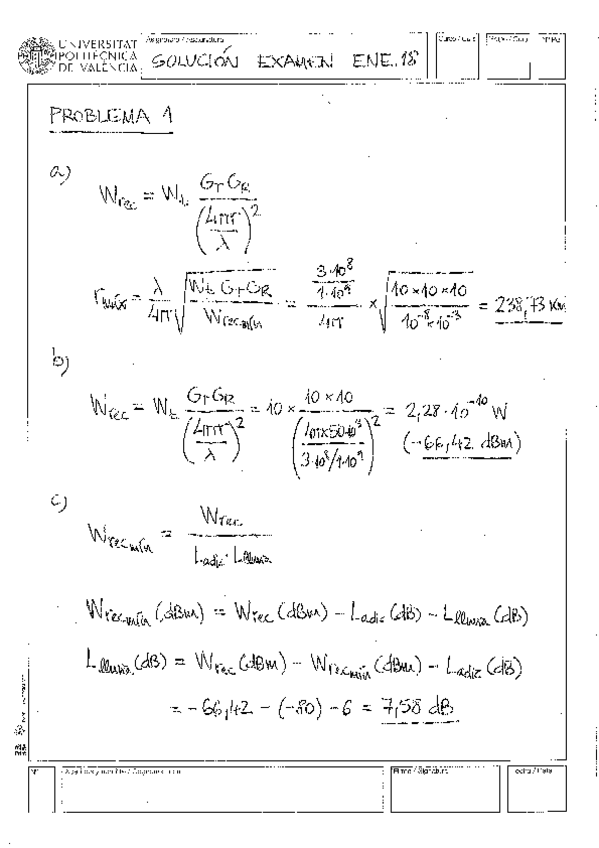 UNIVERSITAT
POLITÈCNICA
DE VALÈNCIA
Asignatura / Assignatura
SOLUCIÓN EXAMEN ENE. 18
Curso / Curs
Grupo / Grup
PROBLEMA 1
a)
W_rec = W_t G_T G_R / (4πr/λ)^2
r_máx = λ/4π √(W_t G_T G_R / W_rec mín) = (3·10^8 / 1·10^9) / 4π × √(10×10×10 / 10^-8×10^-3) = 238,73 Km
b)
W_rec = W_t G_T G_R / (4πr/λ)^2 = 10 × 10×10 / (4π×50·10^3 / 3·10^8/1·10^9)^2 = 2,28·10^-10 W
(-66,42 dBm)
c)
W_rec mín = W_rec / L_adic · L_lluvia
W_rec mín (dBm) = W_rec (dBm) - L_adic (dB) - L_lluvia (dB)
L_lluvia (dB) = W_rec (dBm) - W_rec mín (dBm) - L_adic (dB)
= -66,42 - (-80) - 6 = 7,58 dB
Nº
Firma / Signatura
Fecha / Data